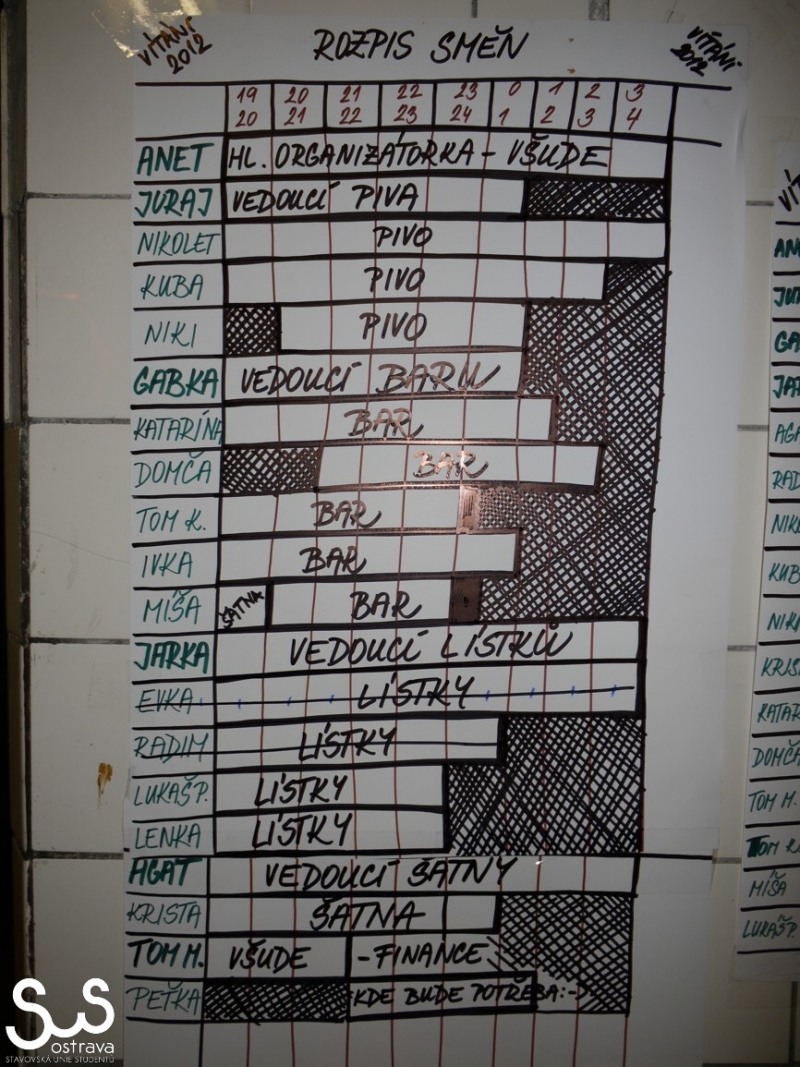 VÍTÁNÍ 2012
ROZPIS SMĚN
VÍTÁNÍ 2012
19 20 21 22 23 0 1 2 3
20 21 22 23 24 1 2 3 4
ANET HL. ORGANIZÁTORKA - VŠUDE
JURAJ VEDOUCÍ PIVA
NIKOLET PIVO
KUBA PIVO
NIKI PIVO
GABKA VEDOUCÍ BARU
KATARÍNA BAR
DOMČA BAR
TOM K. BAR
IVKA BAR
MÍŠA ŠATNA BAR
JARKA VEDOUCÍ LÍSTKŮ
EVKA LÍSTKY
RADIM LÍSTKY
LUKÁŠ P. LÍSTKY
LENKA LÍSTKY
AGAT VEDOUCÍ ŠATNY
KRISTA ŠATNA
TOM M. VŠUDE - FINANCE
PEŤKA KDE BUDE POTŘEBA :-)
SUS
ostrava
STAVOVSKÁ UNIE STUDENTŮ
TOM M.
MÍŠA
LUKÁŠ P.